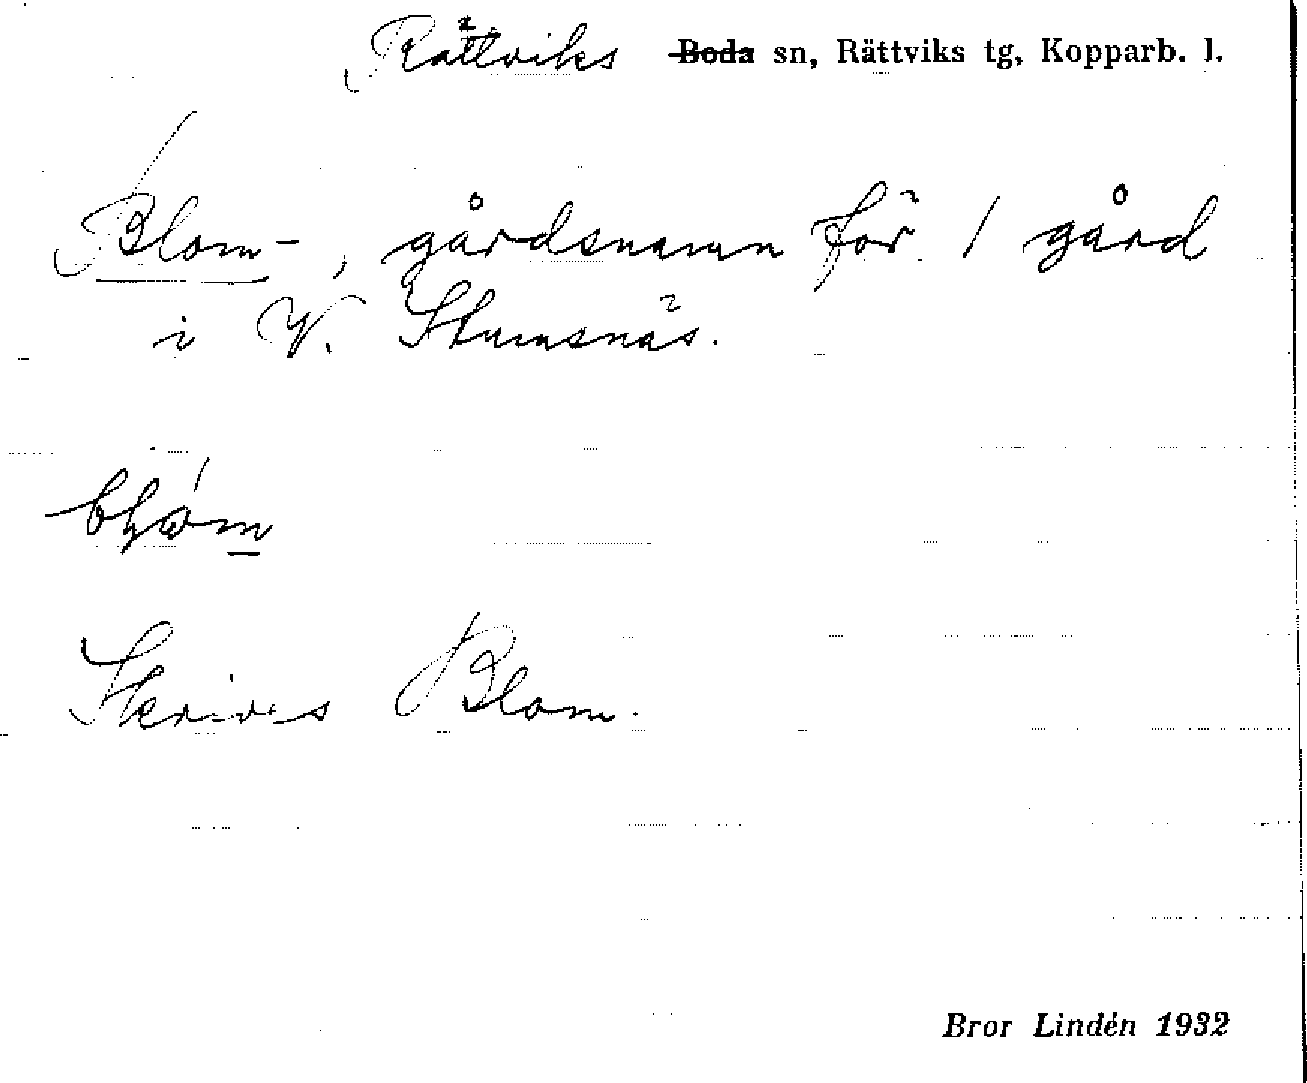 Rättviks Boda sn, Rättviks tg, Kopparb. l.
Blom-, gårdsnamn för 1 gård
i V. Stumsnäs.
Skrives Blom.
Bror Lindén 1932